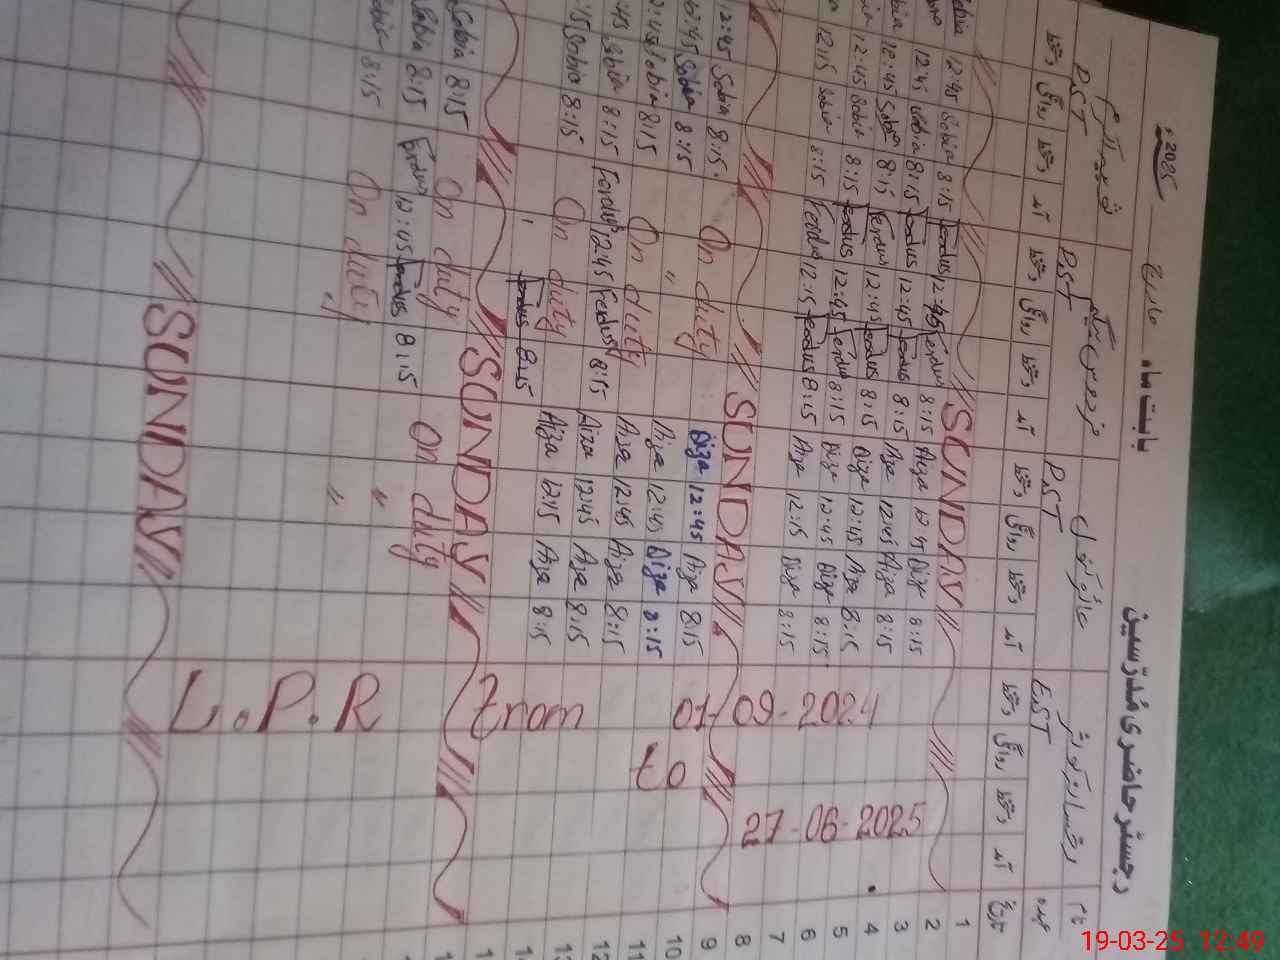 رجسٹر حاضری مدرسین بابت ماہ مارچ 2025ء
نام رخسانہ کوثر عائزہ بتول فردوس بیگم
عہدہ EST PST PST PST
تاریخ آمد دستخط روانگی دستخط آمد دستخط روانگی دستخط آمد دستخط روانگی دستخط آمد دستخط روانگی دستخط
1
2 SUNDAY
3 8:15 Aiza 12:45 Aiza 8:15 Ferdus 12:45 Ferdus 8:15 Sobia 12:45 Sobia
4 8:15 Aiza 12:45 Aiza 8:15 Ferdus 12:45 Ferdus 8:15 Sobia 12:45
5 8:15 Aiza 12:45 Aiza 8:15 Ferdus 12:45 Ferdus 8:15 Sobia 12:45
6 8:15 Aiza 12:45 Aiza 8:15 Ferdus 12:45 Ferdus 8:15 Sobia 12:45
7 8:15 Aiza 12:15 Aiza 8:15 Ferdus 12:15 Ferdus 8:15 Sobia 12:15
8 SUNDAY
9 8:15 Aiza 12:45 Aiza On duty 8:15 Sobia 12:45
10 8:15 Aiza 12:45 Aiza " 8:15 Sobia
11 8:15 Aiza 12:45 Aiza On duty 8:15 Sobia
12 8:15 Aiza 12:45 Aiza 8:15 Ferdus 12:45 Ferdus 8:15 Sobia
13 8:15 Aiza 12:15 Aiza On duty 8:15 Sobia
8:15 Ferdus
SUNDAY
On duty On duty 8:15 Sobia
" 8:15 Ferdus 12:45 Ferdus 8:15 Sobia
" On duty 8:15
"
SUNDAY
L.P.R from 01-09-2024
to
27-06-2025
19-03-25 12:49